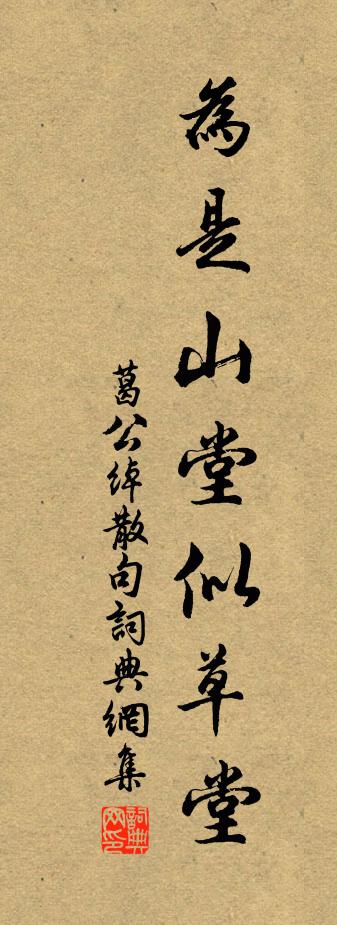 為是山堂似草堂
葛公绰散句詞典網集
詞典網印